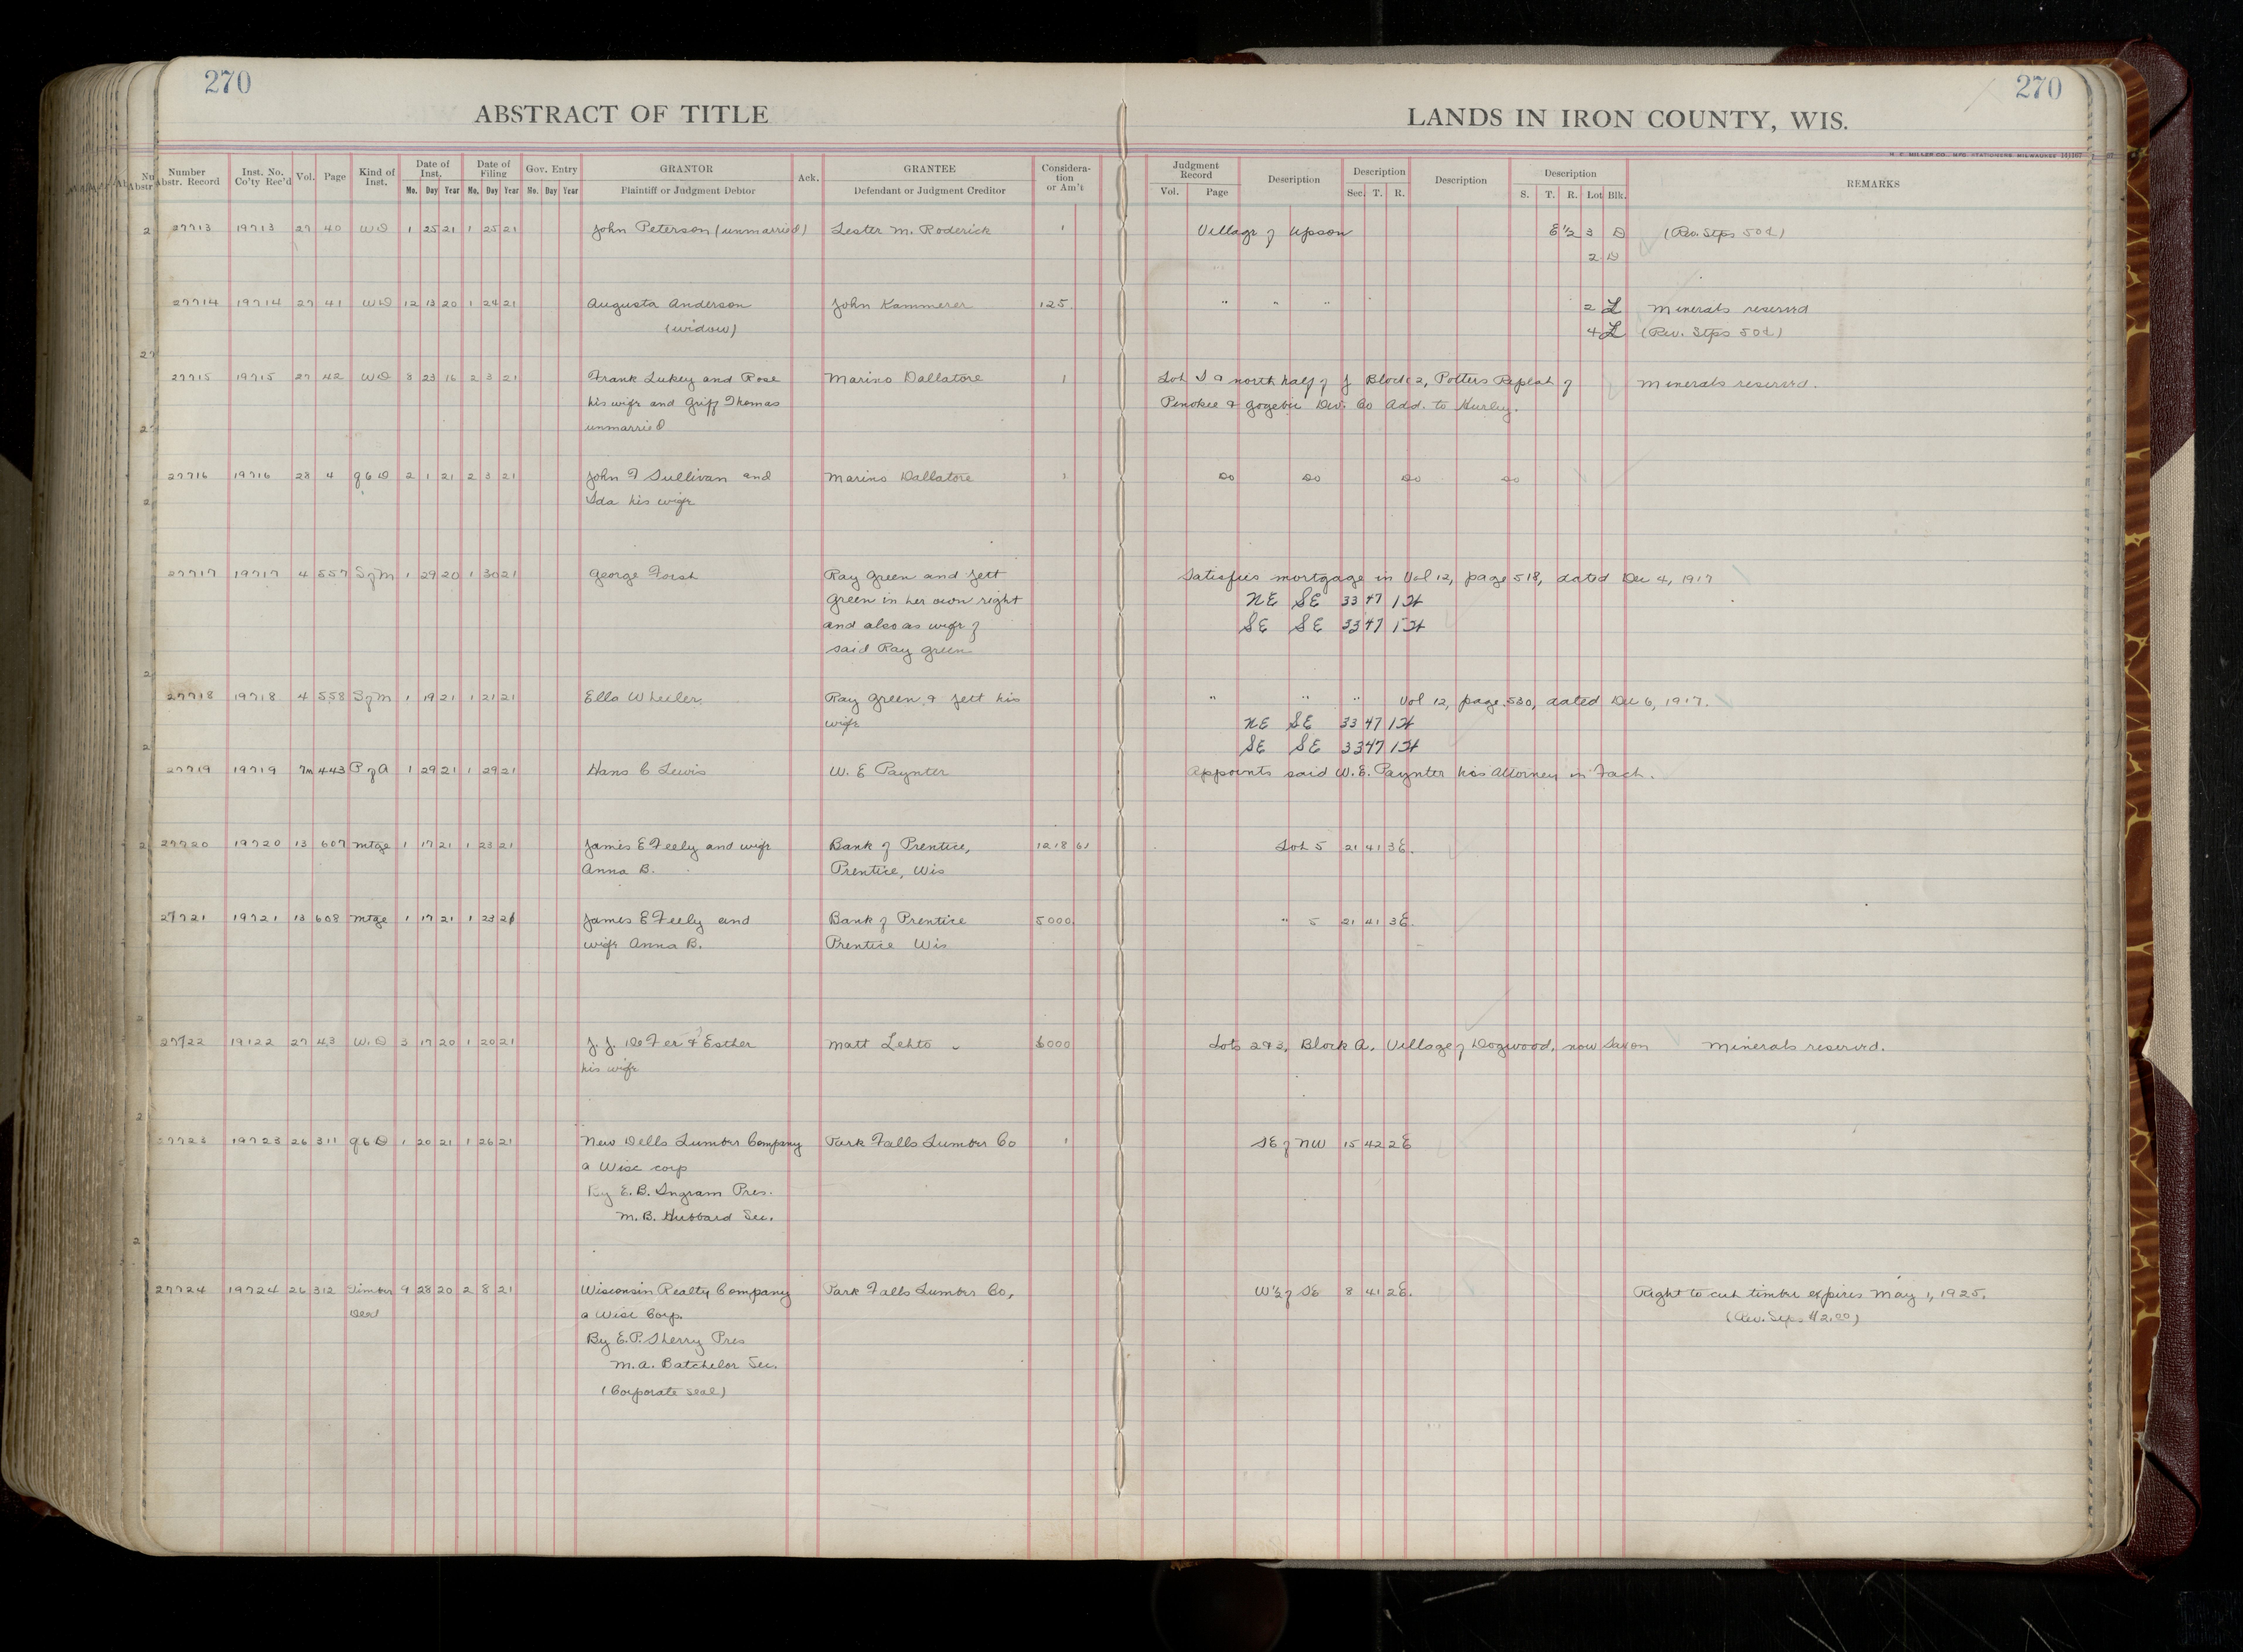 270
270
ABSTRACT OF TITLE
LANDS IN IRON COUNTY, WIS.
Number Abstr. Record Inst. No. Co'ty Rec'd Vol. Page Kind of Inst. Date of Inst. Mo. Day Year Date of Filing Mo. Day Year Gov. Entry Mo. Day Year GRANTOR Plaintiff or Judgment Debtor Ack. GRANTEE Defendant or Judgment Creditor Consideration or Am't Judgment Record Vol. Page Description Description Sec. T. R. Description Description S. T. R. Lot Blk. REMARKS
27713 19713 27 40 WD 1 25 21 1 25 21 John Peterson (unmarried) Lester M. Roderick 1 Village of Upson E 1/2 3 D (Rev. Stps 50¢)
2 D
27714 19714 27 41 WD 12 13 20 1 24 21 Augusta Anderson John Kammerer 125. " " " 2 L Minerals reserved
(widow) 4 L (Rev. Stps 50¢)
27715 19715 27 42 WD 8 23 16 2 3 21 Frank Lukey and Rose Marino Dallatore 1 Lot I & north half of J Block 2, Potters Replat of Minerals reserved.
his wife and Griff Thomas Penokee & Gogebic Dev. Co Add. to Hurley.
unmarried
27716 19716 28 4 QCD 2 1 21 2 3 21 John F Sullivan and Marino Dallatore 1 Do Do Do Do
Ida his wife
27717 19717 4 557 S of M 1 29 20 1 30 21 George Forst Ray Green and Jett Satisfies mortgage in Vol 12, page 518, dated Dec 4, 1917
Green in her own right NE SE 33 47 1 W
and also as wife of SE SE 33 47 1 W
said Ray Green
27718 19718 4 558 S of M 1 19 21 1 21 21 Ella Wheeler Ray Green & Jett his " " " Vol 12, page 530, dated Dec 6, 1917.
wife NE SE 33 47 1 W
SE SE 33 47 1 W
27719 19719 7m 443 P of A 1 29 21 1 29 21 Hans C Lewis W. E Paynter Appoints said W. E. Paynter his Attorney in Fact.
27720 19720 13 607 Mtge 1 17 21 1 23 21 James E Feely and wife Bank of Prentice, 1218 61 Lot 5 21 41 3E.
Anna B. Prentice, Wis
27721 19721 13 608 Mtge 1 17 21 1 23 21 James E Feely and Bank of Prentice 5000 " 5 21 41 3E.
wife Anna B. Prentice Wis
27722 19722 27 43 W.D 3 17 20 1 20 21 J. J. DeFer & Esther Matt Lehto 6000 Lots 2 & 3, Block A, Village of Dogwood, now Saxon Minerals reserved.
his wife
27723 19723 26 311 QCD 1 20 21 1 26 21 New Dells Lumber Company Park Falls Lumber Co 1 SE of NW 15 42 2E
a Wisc corp
By E. B. Ingram Pres.
M. B. Hubbard Sec.
27724 19724 26 312 Timber 9 28 20 2 8 21 Wisconsin Realty Company Park Falls Lumber Co, W 1/2 of SE 8 41 2E. Right to cut timber expires May 1, 1925.
Deed a Wisc Corp. (Rev. Stps. $2.00)
By E. P. Sherry Pres
M. A. Batchelor Sec.
(Corporate seal)